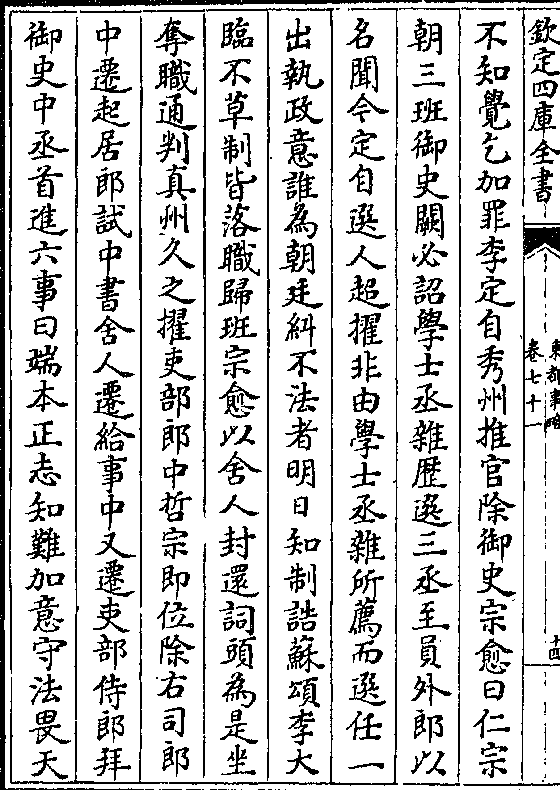 欽定四庫全書
東都事略
卷七十一
十四
不知覺乞加罪李定自秀州推官除御史宗愈曰仁宗
朝三班御史闕必詔學士丞雜歴選三丞至員外郎以
名聞今定自選人超擢非由學士丞雜所薦而選任一
出執政意誰為朝廷糾不法者明日知制誥蘇頌李大
臨不草制皆落職歸班宗愈以舍人封還詞頭為是坐
奪職通判真州久之擢吏部郎中哲宗即位除右司郎
中遷起居郎試中書舍人遷給事中又遷吏部侍郎拜
御史中丞首進六事曰端本正志知難加意守法畏天